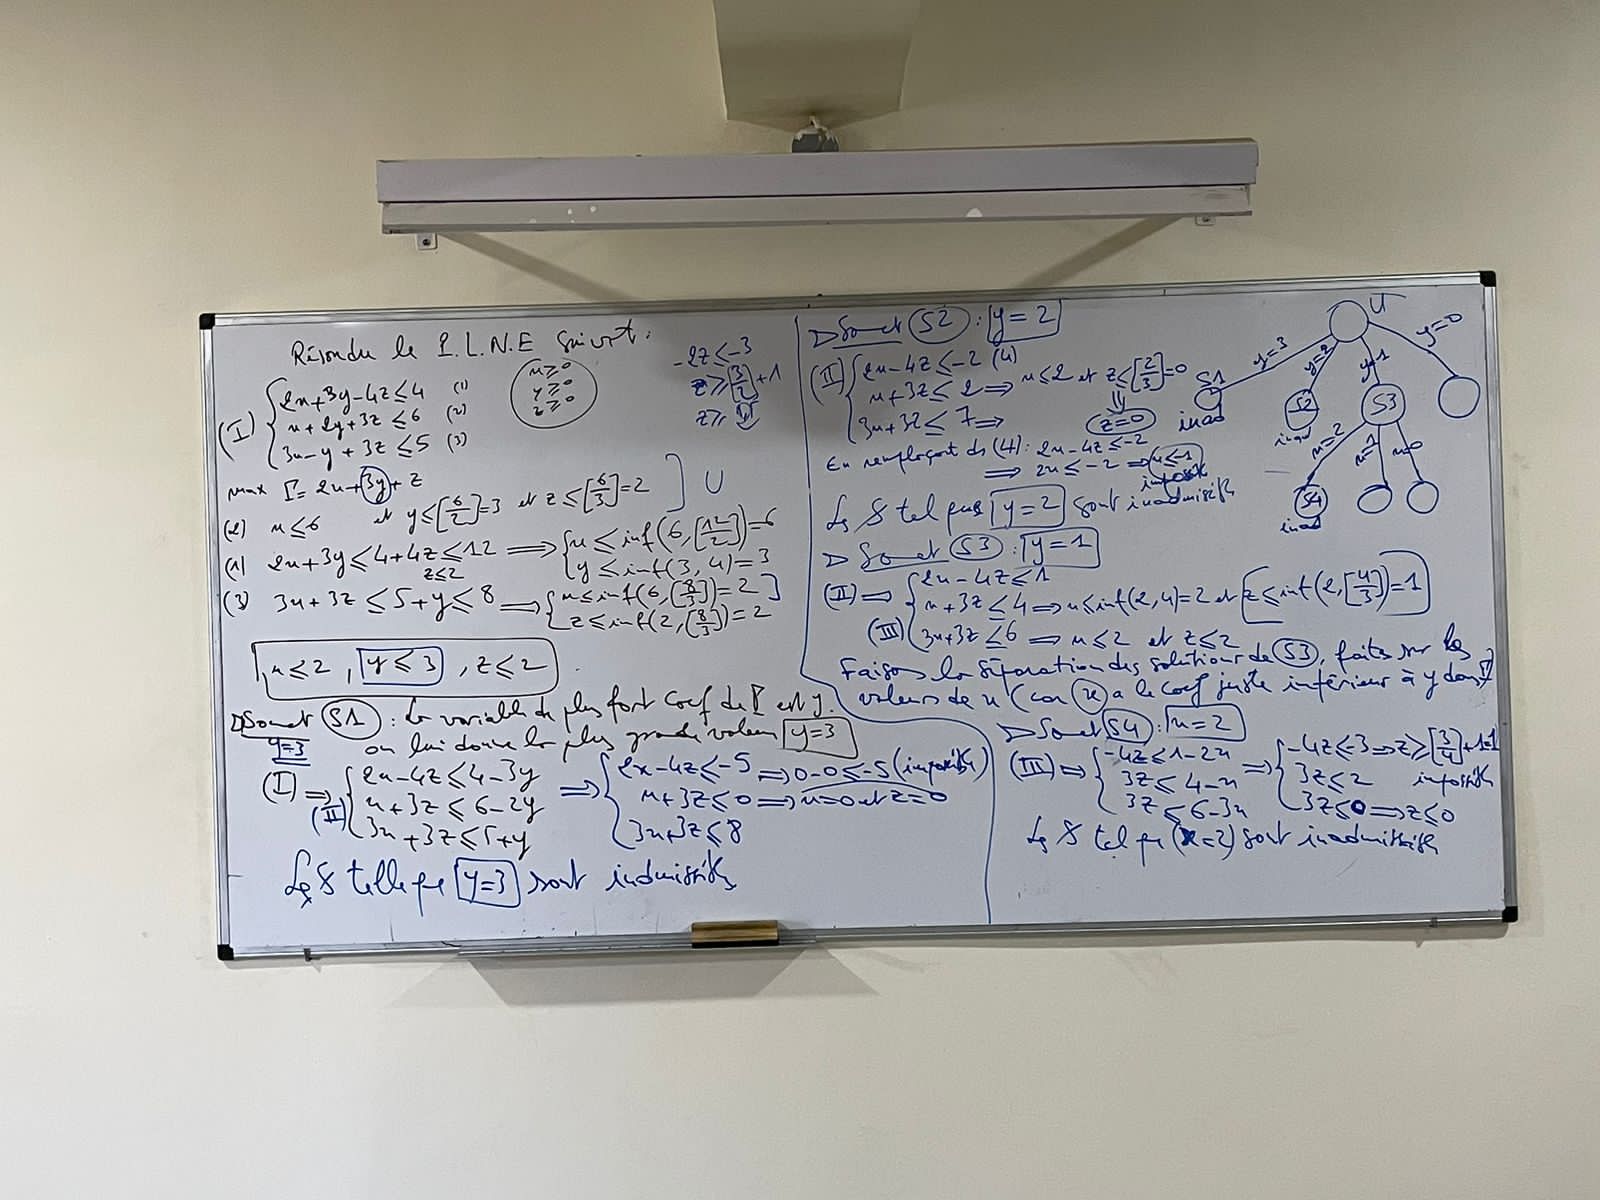 Résoudre le P.L.N.E suivant :
(I) { 2x+3y-4z ≤ 4 (1)
x+2y+3z ≤ 6 (2)
3x-y+3z ≤ 5 (3)
x ≥ 0
y ≥ 0
z ≥ 0
-2z ≤ -3
z ≥ [3/2]+1
max Γ = 2x+3y+z
(2) x ≤ 6 et y ≤ [6/2]=3 et z ≤ [6/3]=2 ] U
(1) 2x+3y ≤ 4+4z ≤ 12 ⟹ { x ≤ inf(6, [12/2])=6
z ≤ 2
y ≤ inf(3, 4)=3
(3) 3x+3z ≤ 5+y ≤ 8 ⟹ { x ≤ inf(6, [8/3])=2
z ≤ inf(2, [8/3])=2
x ≤ 2 , y ≤ 3 , z ≤ 2
▷ Somet S1 : la variable de plus fort coef de Γ est y.
y=3
on lui donne la plus grande valeur y=3
(I) ⟹ (II) { 2x-4z ≤ 4-3y ⟹ { 2x-4z ≤ -5 ⟹ 0-0 ≤ -5 (impossible)
x+3z ≤ 6-2y x+3z ≤ 0 ⟹ x=0 et z=0
3x+3z ≤ 5+y 3x+3z ≤ 8
Les S telle que y=3 sont inadmissibles
▷ Somet S2 : y=2
(II) { 2x-4z ≤ -2 (4)
x+3z ≤ 2 ⟹ x ≤ 2 et z ≤ [2/3]=0
3x+3z ≤ 7 ⟹
⇓
z=0
En remplaçant ds (4) : 2x-4z ≤ -2
⟹ 2x ≤ -2 ⟹ x ≤ -1
impossible
Les S tel que y=2 sont inadmissibles
▷ Somet S3 : y=1
(II) ⟹ { 2x-4z ≤ 1
x+3z ≤ 4 ⟹ x ≤ inf(2,4)=2 et z ≤ inf(2, [4/3])=1
(III) 3x+3z ≤ 6 ⟹ x ≤ 2 et z ≤ 2
Faisons la séparation des solutions de S3, faites sur les
valeurs de x (car x a le coef juste inférieur à y dans Γ)
▷ Somet S4 : x=2
(III) ⟹ { -4z ≤ 1-2x ⟹ { -4z ≤ -3 ⟹ z ≥ [3/4]+1=1
3z ≤ 4-x 3z ≤ 2 impossible
3z ≤ 6-3x 3z ≤ 0 ⟹ z ≤ 0
Les S tel que (x=2) sont inadmissibles
U
y=3
y=2
y=1
y=0
S1
inad
S2
inad
S3
x=2
x=1
x=0
S4
inad